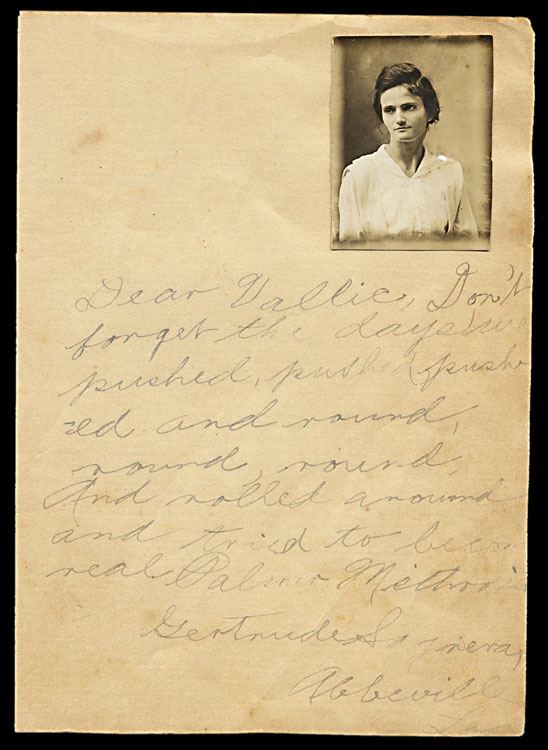 Dear Vallie, Don't
forget the days we
pushed, pushed, push
=ed and round,
round, round,
And rolled around
and tried to becom
real Palmer Methodi
Gertrude
Abbeville
La